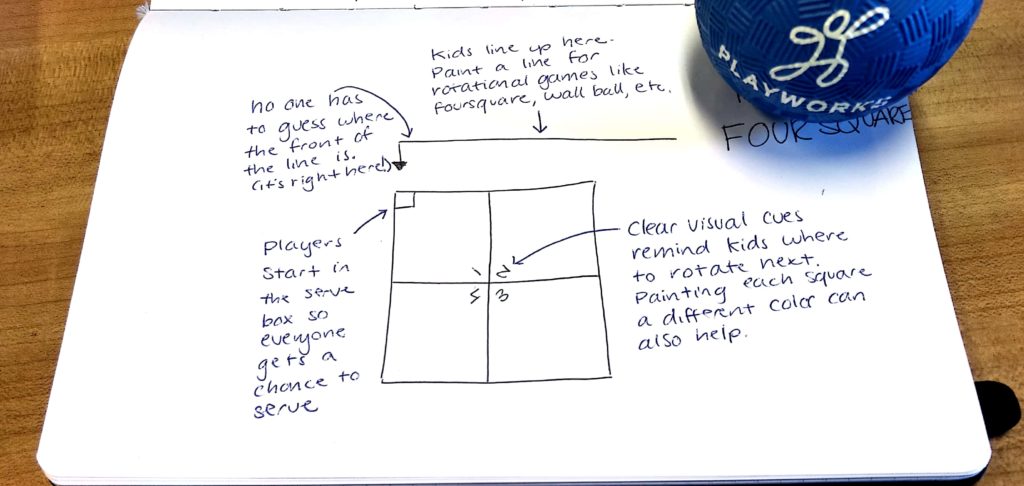 Kids line up here.
Paint a line for
rotational games like
foursquare, wall ball, etc.
no one has
to guess where
the front of
the line is.
(it's right here!)
PLAYWORKS
FOUR SQUARE
Players
start in
the serve
box so
everyone
gets a
chance to
serve
1 2
3
Clear visual cues
remind kids where
to rotate next.
Painting each square
a different color can
also help.